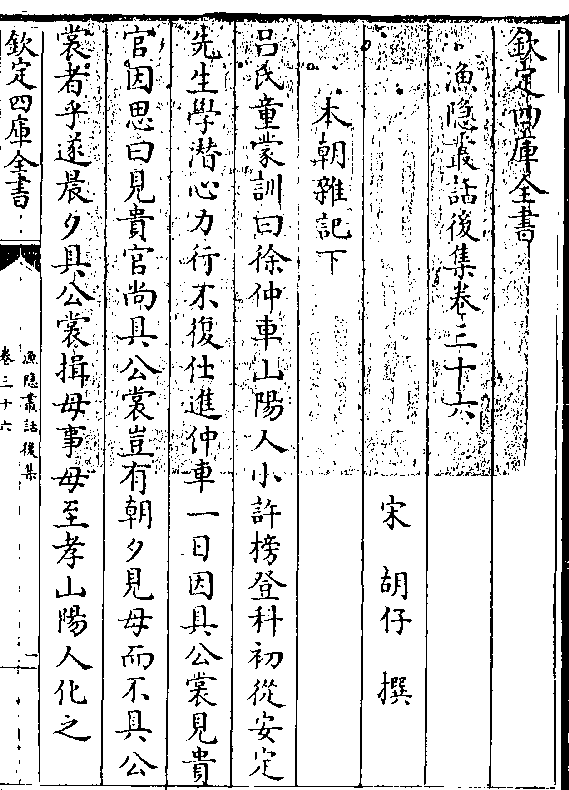 欽定四庫全書
漁隱叢話後集卷三十六
宋 胡仔 撰
本朝雜記下
吕氏童蒙訓曰徐仲車山陽人小許榜登科初從安定
先生學潜心力行不復仕進仲車一日因具公裳見貴
官因思曰見貴官尚具公裳豈有朝夕見母而不具公
裳者乎遂晨夕具公裳揖母事母至孝山陽人化之
欽定四庫全書
漁隱叢話後集
卷三十六
一